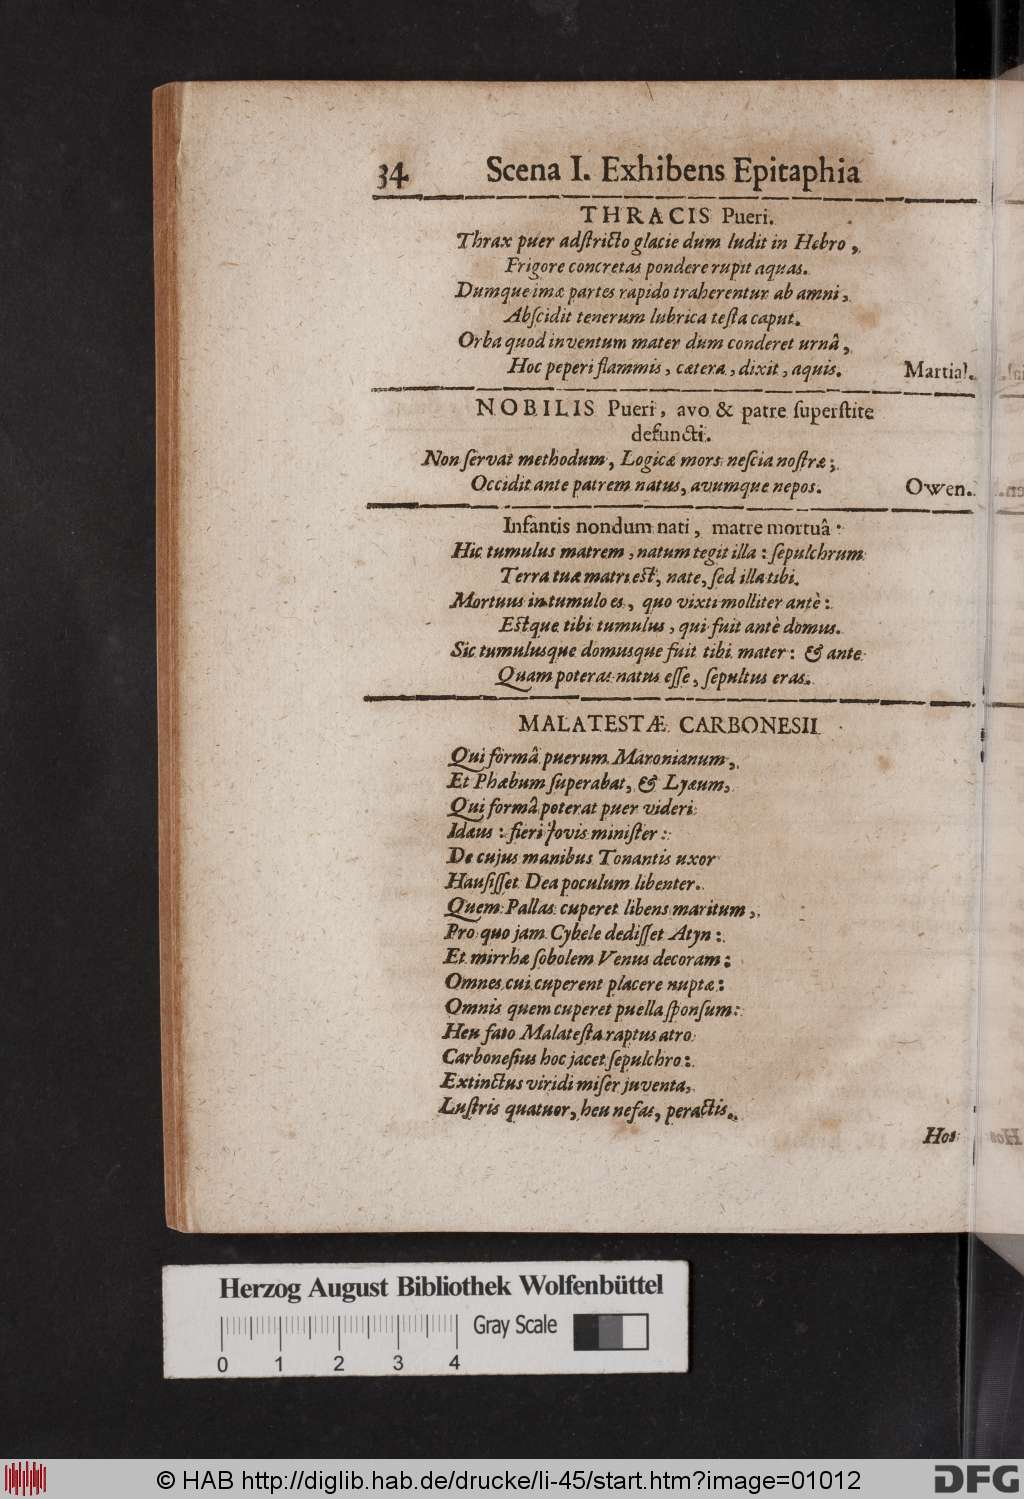 34 Scena I. Exhibens Epitaphia
THRACIS Pueri.
Thrax puer adſtricto glacie dum ludit in Hebro,
Frigore concretas pondere rupit aquas.
Dumque imæ partes rapido traherentur ab amni,
Abſcidit tenerum lubrica teſta caput.
Orba quod inventum mater dum conderet urnâ,
Hoc peperi flammis, cætera, dixit, aquis. Martial.
NOBILIS Pueri, avo & patre ſuperſtite
defuncti.
Non ſervat methodum, Logicæ mors neſcia noſtræ;
Occidit ante patrem natus, avumque nepos. Owen.
Infantis nondum nati, matre mortuâ:
Hic tumulus matrem, natum tegit illa: ſepulchrum
Terra tuæ matri eſt, nate, ſed illa tibi.
Mortuus in tumulo es, quo vixti molliter antè:
Eſtque tibi tumulus, qui fuit antè domus.
Sic tumulusque domusque fuit tibi mater: & ante
Quam poteras natus eſſe, ſepultus eras.
MALATESTÆ CARBONESII
Qui formâ puerum Maronianum,
Et Phæbum ſuperabat, & Lyæum,
Qui formâ poterat puer videri
Idæus: fieri Jovis miniſter:
De cujus manibus Tonantis uxor
Hauſiſſet Dea poculum libenter.
Quem Pallas cuperet libens maritum,
Pro quo jam Cybele dediſſet Atyn:
Et mirrhæ ſobolem Venus decoram:
Omnes cui cuperent placere nuptæ:
Omnis quem cuperet puella ſponſum:
Heu fato Malateſta raptus atro
Carboneſius hoc jacet ſepulchro:
Extinctus viridi miſer juventa,
Luſtris quatuor, heu nefas, peractis.
Hos
Herzog August Bibliothek Wolfenbüttel
Gray Scale
0 1 2 3 4
© HAB http://diglib.hab.de/drucke/li-45/start.htm?image=01012
DFG